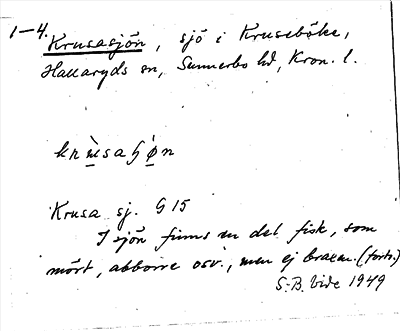 1–4.
Krusasjön, sjö i Kruseböke,
Hallaryds sn, Sunnerbo hd, Kron. l.
Krusa sj. G 15
I sjön finns en del fisk, som
mört, abborre osv., men ej braxen. (forts.)
S.-B. Vide 1949